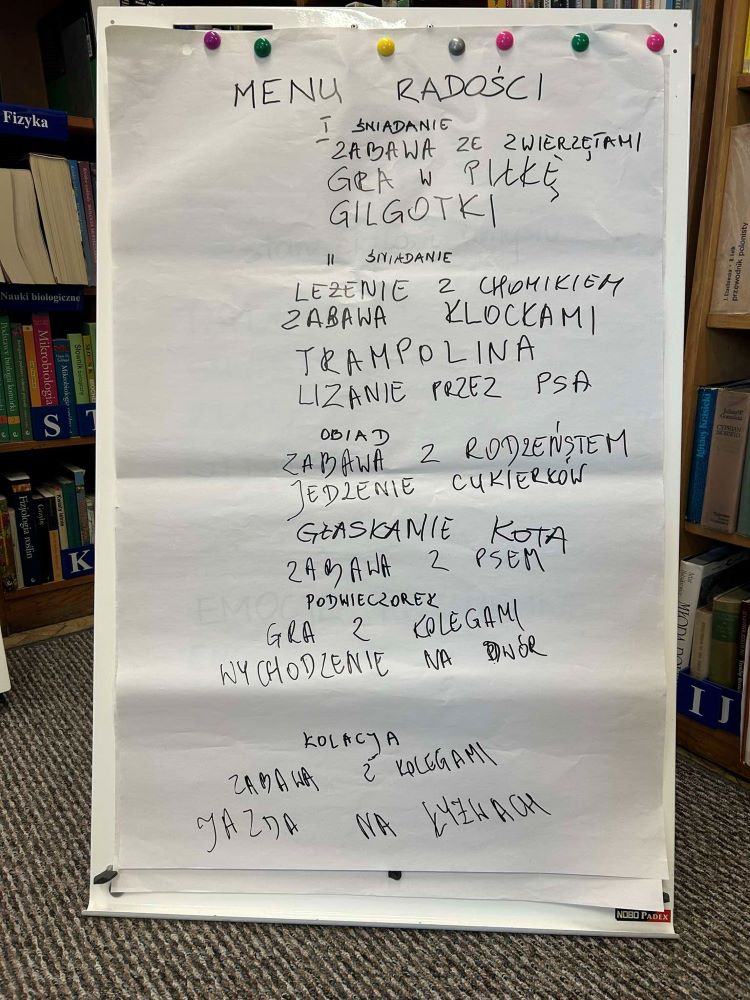 MENU RADOŚCI
I ŚNIADANIE
ZABAWA ZE ZWIERZĘTAMI
GRA W PIŁKĘ
GILGOTKI
II ŚNIADANIE
LEŻENIE Z CHOMIKIEM
ZABAWA KLOCKAMI
TRAMPOLINA
LIZANIE PRZEZ PSA
OBIAD
ZABAWA Z RODZEŃSTEM
JEDZENIE CUKIERKÓW
GŁASKANIE KOTA
ZABAWA Z PSEM
PODWIECZOREK
GRA Z KOLEGAMI
WYCHODZENIE NA DWÓR
KOLACJA
ZABAWA Z KOLEGAMI
JAZDA NA ŁYŻWACH
NOBO PADEX
Fizyka
Nauki biologiczne
Podstawy biologii komórki
Mikrobiologia
Słownik
S T
Fizjologia roślin
K
przewodnik polonisty
Ignacy Krasicki
CYPRIAN
MŁODA
I J